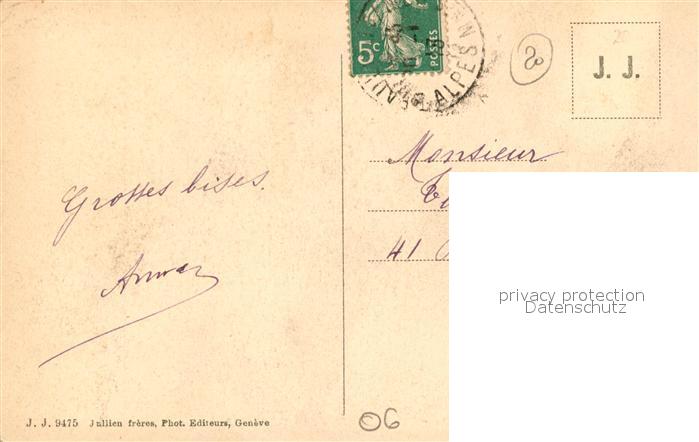 5c
POSTES
ALPES
8
J. J.
Monsieur
41
Grosses bises.
J. J. 9475 Jullien frères, Phot. Editeurs, Genève
06
privacy protection
Datenschutz